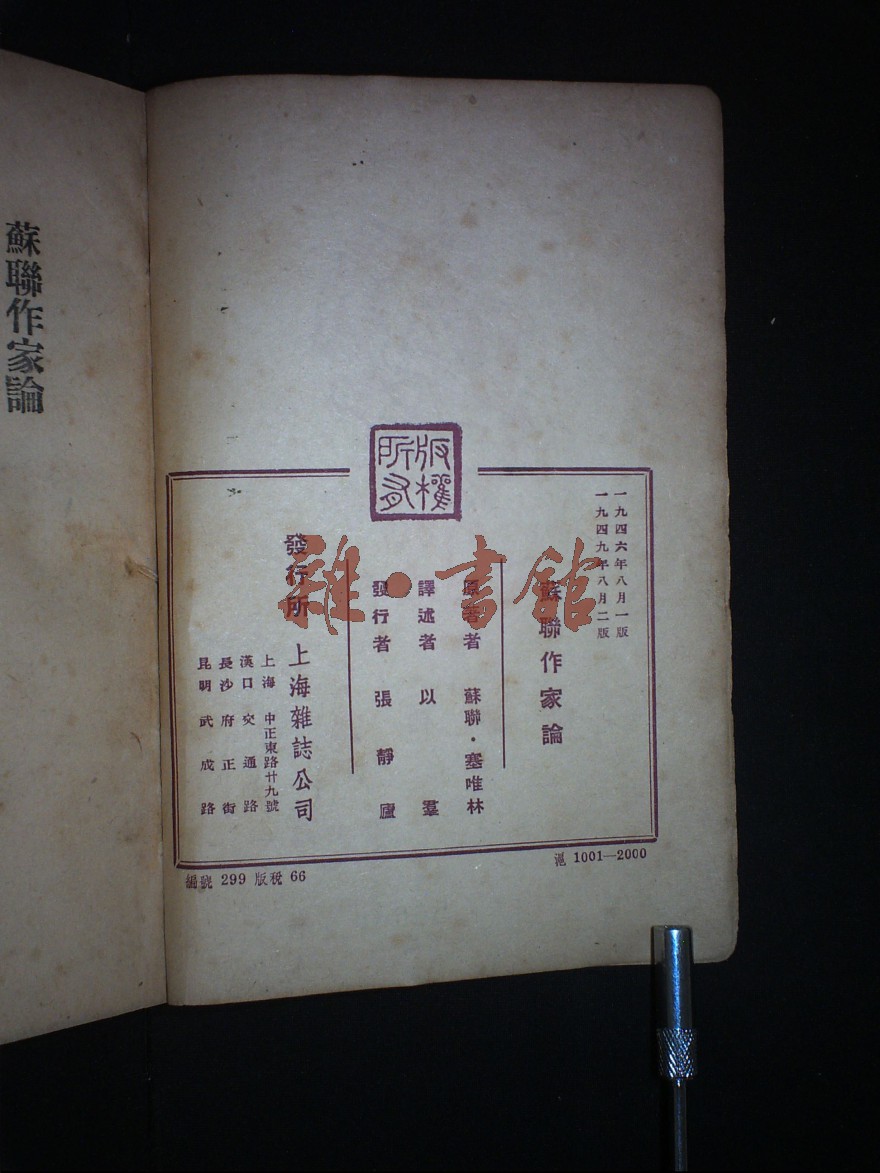 一九四六年八月一版
一九四九年八月二版
蘇聯作家論
原著者 蘇聯・塞唯林
譯述者 以羣
發行者 張靜廬
發行所 上海雜誌公司
上海 中正東路廿九號
漢口 交通路
長沙 府正街
昆明 武成路
版權所有
滬 1001—2000
編號 299 版稅 66
蘇聯作家論
雜・書館